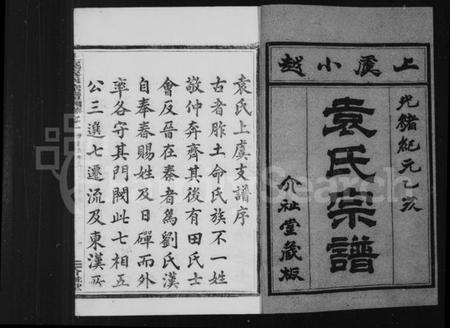 上虞小越
光緒紀元乙亥
袁氏宗譜
介祉堂藏板
袁氏上虞支譜序
古者胙土命氏族不一姓
敬仲奔齊其後有田氏士
會反晉在秦者為劉氏漢
自奉春賜姓及日磾而外
率各守其門閥此七相五
公三遷七遷流及東漢